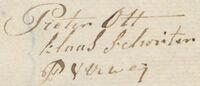 Pieter Ott
Klaas Schouten
P Verweij